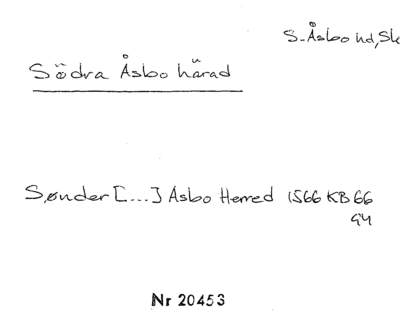 S-Åsbo hd, Sk
Södra Åsbo härad
Sønder [...] Asbo Herred 1566 KB 66
Nr 20453